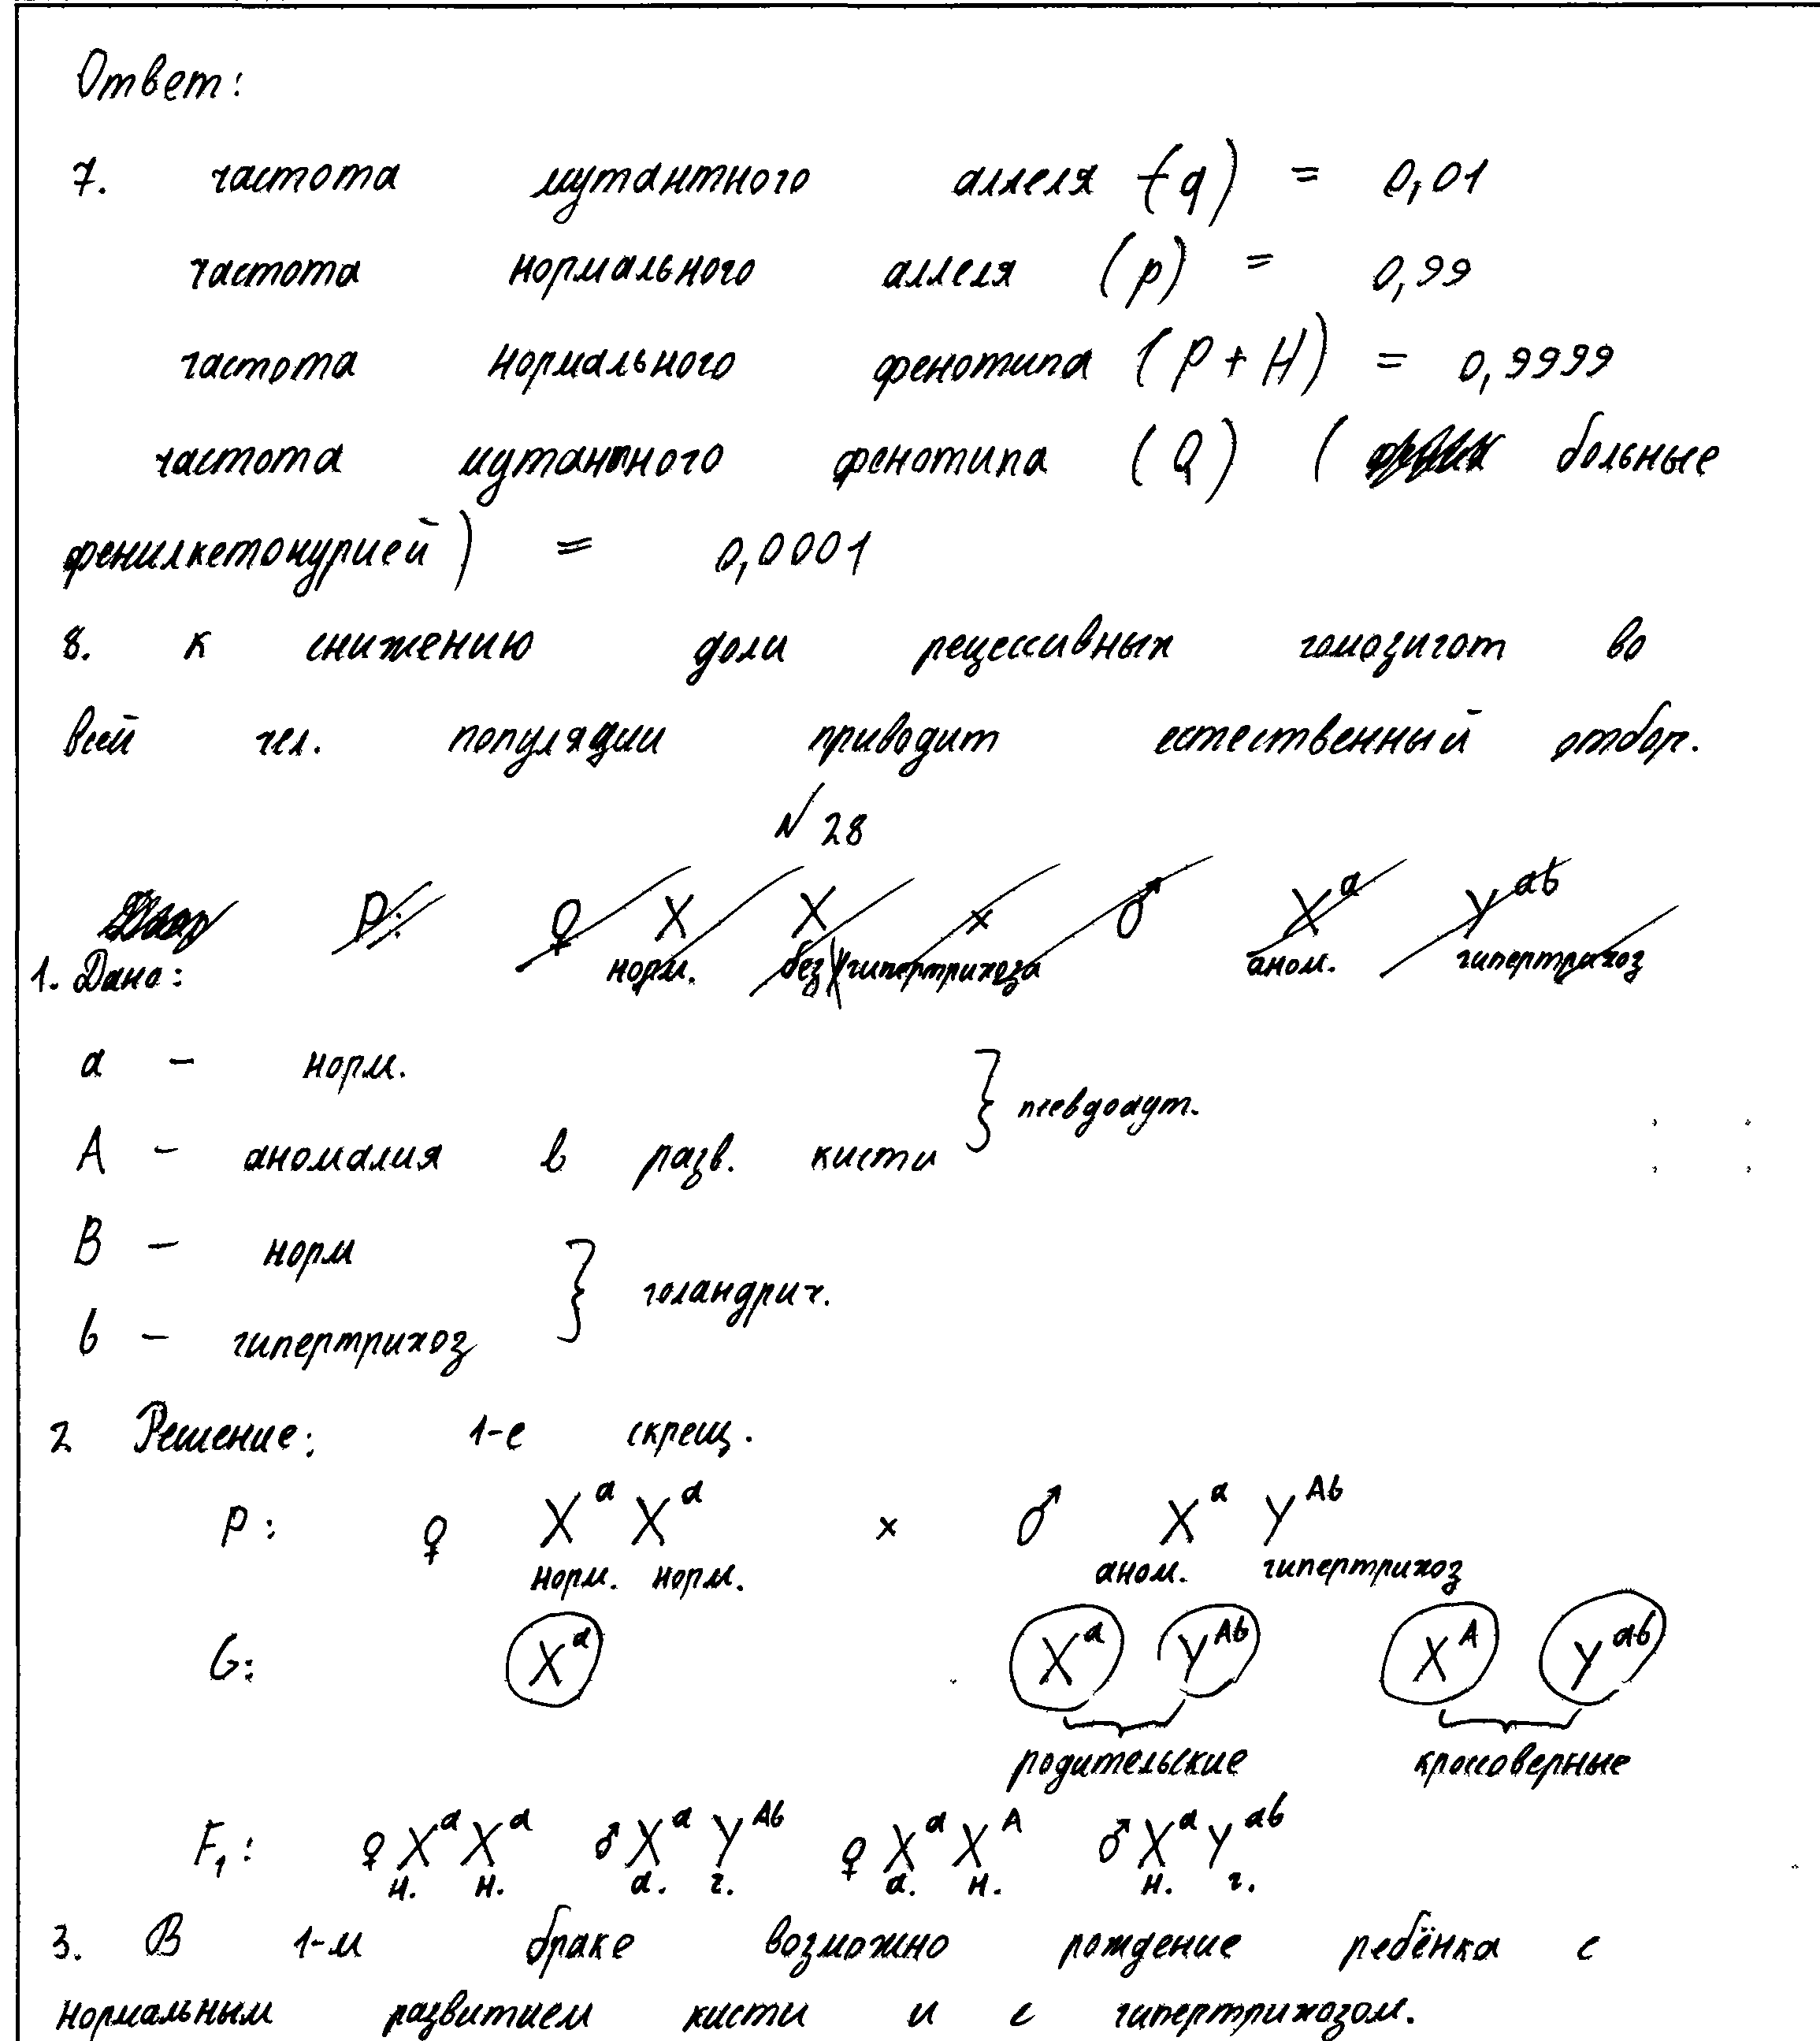 Ответ:
7. частота мутантного аллеля (q) = 0,01
частота нормального аллеля (p) = 0,99
частота нормального фенотипа (P + H) = 0,9999
частота мутантного фенотипа (Q) ( больные
фенилкетонурией) = 0,0001
8. к снижению доли рецессивных гомозигот во
всей чел. популяции приводит естественный отбор.
№ 28
P: ♀ X X × ♂ X^a Y^ab
норм. без гипертрихоза аном. гипертрихоз
1. Дано:
a – норм.
A – аномалия в разв. кисти } псевдоаут.
B – норм
b – гипертрихоз } голандрич.
2 Решение: 1-е скрещ.
P: ♀ X^a X^a × ♂ X^a Y^Ab
норм. норм. аном. гипертрихоз
G: X^a X^a Y^Ab X^A Y^ab
родительские кроссоверные
F₁: ♀ X^a X^a ♂ X^a Y^Ab ♀ X^a X^A ♂ X^a Y^ab
н. н. а. г. а. н. н. г.
3. В 1-м браке возможно рождение ребёнка с
нормальным развитием кисти и с гипертрихозом.